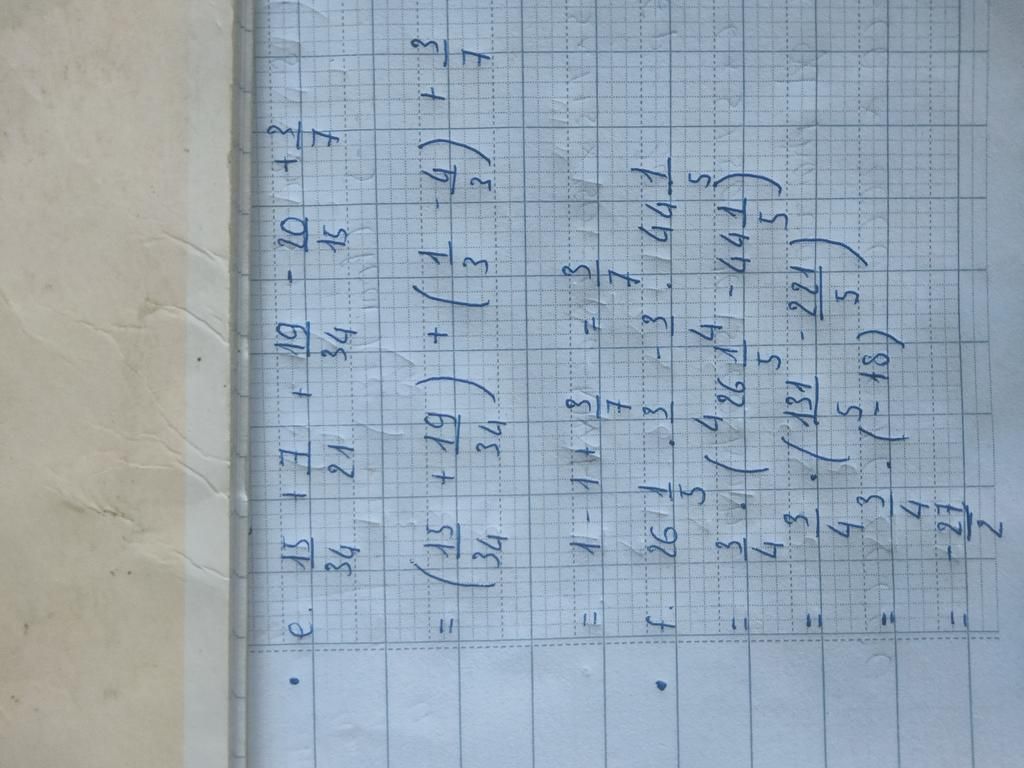 e. 15/34 + 7/21 + 19/34 - 20/15 + 3/7
= (15/34 + 19/34) + (1/3 - 4/3) + 3/7
= 1 - 1 + 3/7 = 3/7
f. 26 1/5 . 3/4 - 3/4 . 44 1/5
= 3/4 . (26 1/5 - 44 1/5)
= 3/4 . (131/5 - 221/5)
= 3/4 . (-18)
= -27/2